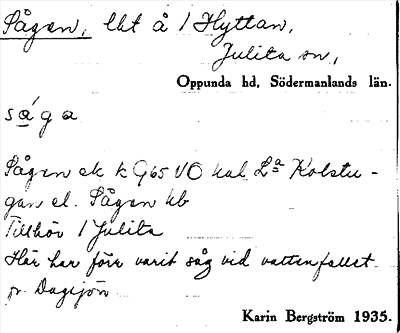 Sågen, lht å 1 Hyttan,
Julita sn,
Oppunda hd, Södermanlands län.
såga
Sågen ek k G65 VO kal. La Kolstu-
gan el. Sågen hb
Tillhör 1 Julita
Här har förr varit såg vid vattenfallet
fr. Dagsjön
Karin Bergström 1935.